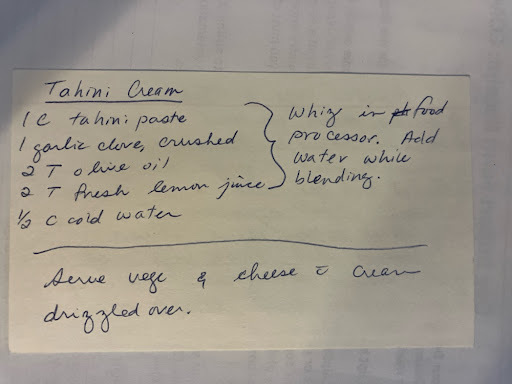 Tahini Cream
1 C tahini paste
1 garlic clove, crushed
2 T olive oil
2 T fresh lemon juice
1/2 C cold water
Whiz in food
processor. Add
water while
blending.
Serve vege & cheese c̄ cream
drizzled over.